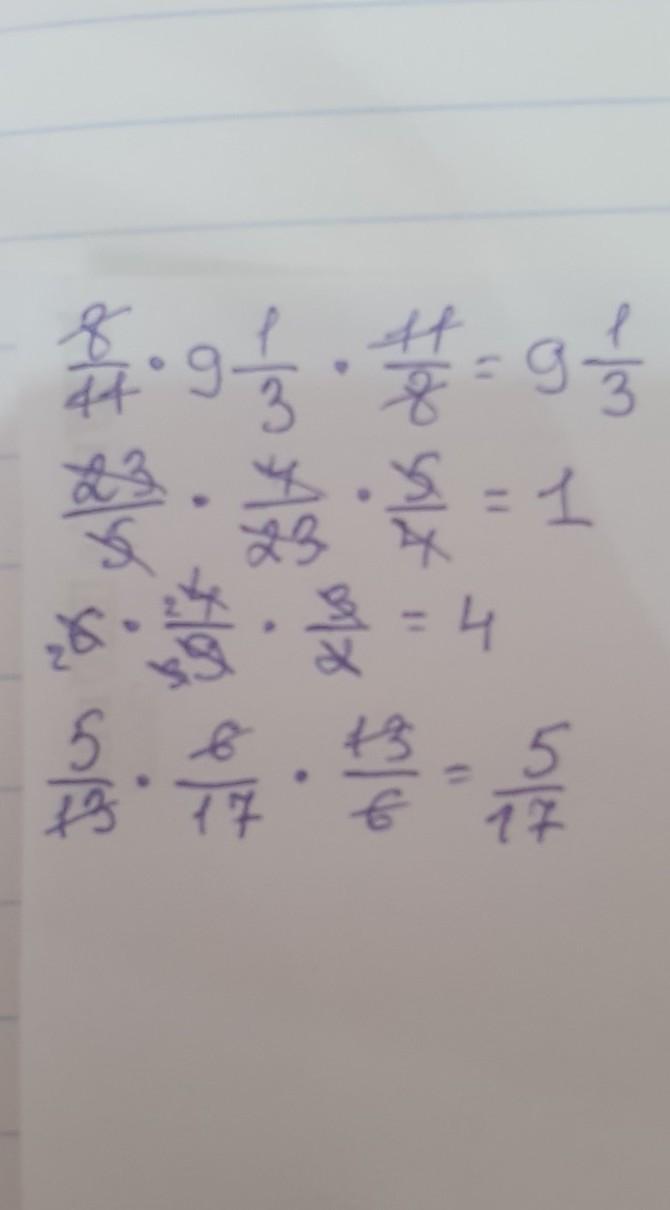 8/11 · 9 1/3 · 11/8 = 9 1/3
23/5 · 4/23 · 5/4 = 1
2 6 · 2 4/9 3 · 3/2 = 4
5/13 · 6/17 · 13/6 = 5/17